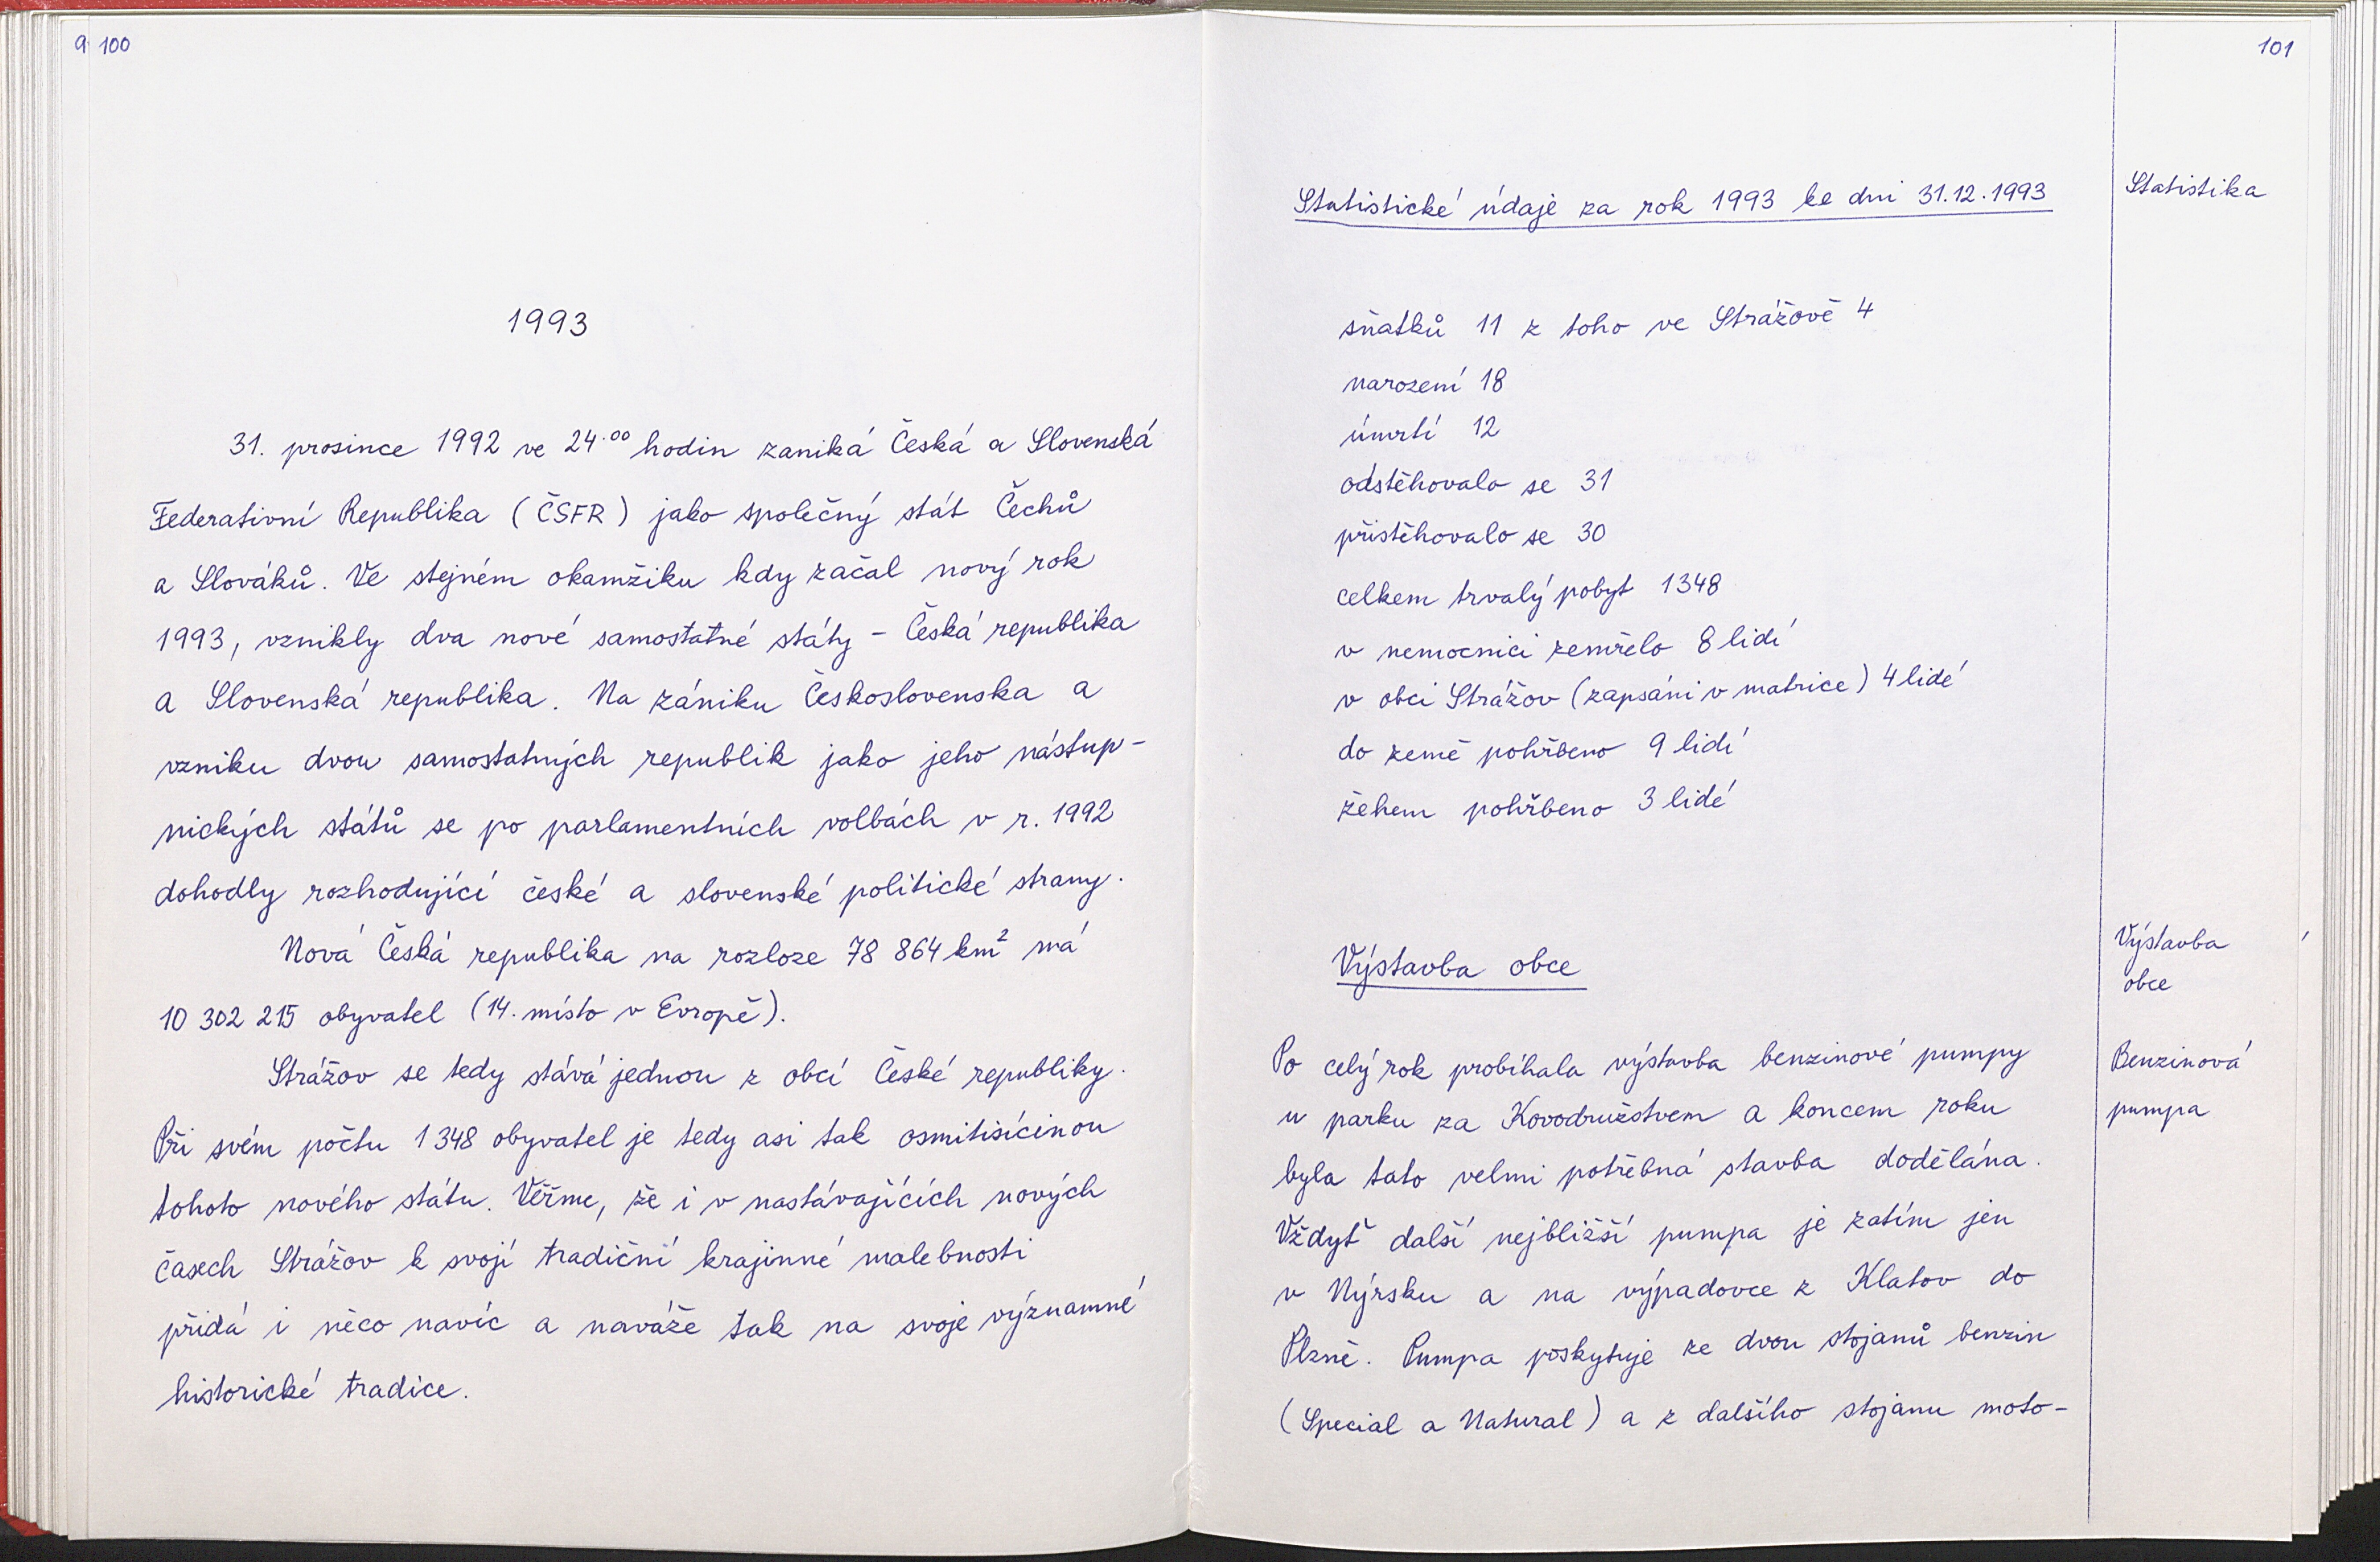 9 100
1993
31. prosince 1992 ve 24.00 hodin zaniká Česká a Slovenská
Federativní Republika (ČSFR) jako společný stát Čechů
a Slováků. Ve stejném okamžiku kdy začal nový rok
1993, vznikly dva nové samostatné státy - Česká republika
a Slovenská republika. Na zániku Československa a
vzniku dvou samostatných republik jako jeho nástup-
nických států se po parlamentních volbách v r. 1992
dohodly rozhodující české a slovenské politické strany.
Nová Česká republika na rozloze 78 864 km² má
10 302 215 obyvatel (14. místo v Evropě).
Strážov se tedy stává jednou z obcí České republiky.
Při svém počtu 1 348 obyvatel je tedy asi tak osmitisícinou
tohoto nového státu. Věřme, že i v nastávajících nových
časech Strážov k svojí tradiční krajinné malebnosti
přidá i něco navíc a naváže tak na svoje významné
historické tradice.
101
Statistické údaje za rok 1993 ke dni 31.12.1993
Statistika
sňatků 11 z toho ve Strážově 4
narození 18
úmrtí 12
odstěhovalo se 31
přistěhovalo se 30
celkem trvalý pobyt 1348
v nemocnici zemřelo 8 lidí
v obci Strážov (zapsáni v matrice) 4 lidé
do země pohřbeno 9 lidí
žehem pohřbeno 3 lidé
Výstavba obce
Výstavba
obce
Po celý rok probíhala výstavba benzinové pumpy
Benzinová
u parku za Kovodružstvem a koncem roku
pumpa
byla tato velmi potřebná stavba dodělána.
Vždyť další nejbližší pumpa je zatím jen
v Nýrsku a na výpadovce z Klatov do
Plzně. Pumpa poskytuje ze dvou stojanů benzin
(Special a Natural) a z dalšího stojanu moto-